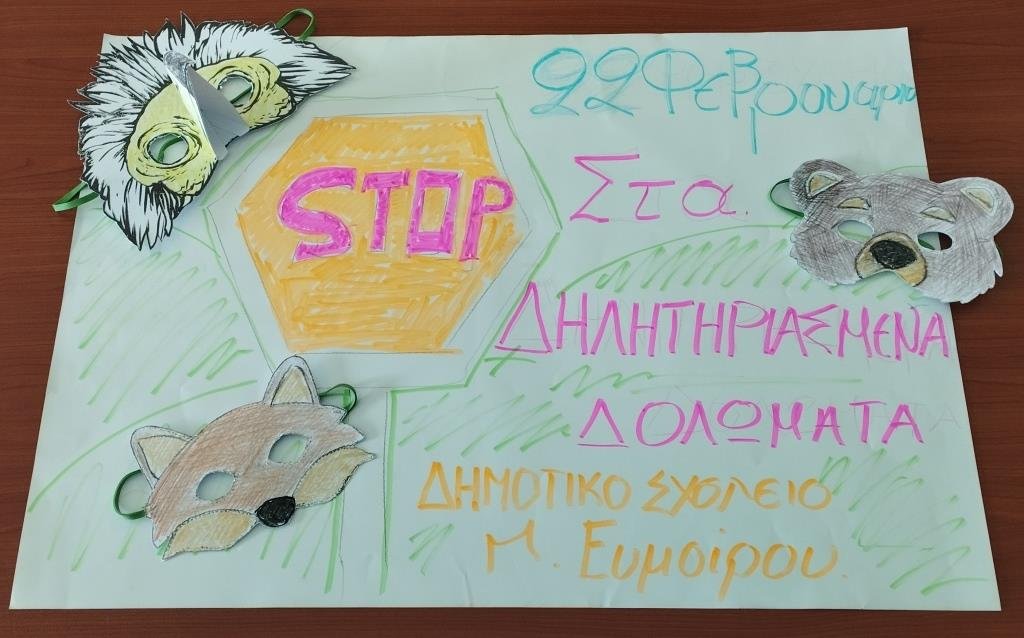 22 Φεβρουαριο
STOP
Στα
ΔΗΛΗΤΗΡΙΑΣΜΕΝΑ
ΔΟΛΩΜΑΤΑ
ΔΗΜΟΤΙΚΟ ΣΧΟΛΕΙΟ
Μ. Ευμοίρου.